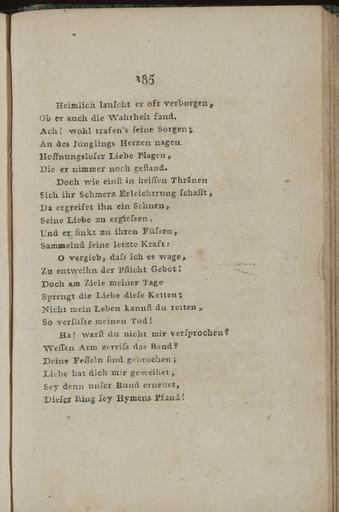 185
Heimlich lauſcht er oft verborgen,
Ob er auch die Wahrheit fand.
Ach! wohl trafen's ſeine Sorgen;
An des Jünglings Herzen nagen
Hoffnungsloſer Liebe Plagen,
Die er nimmer noch geſtand.
Doch wie einſt in heiſſen Thränen
Sich ihr Schmerz Erleichtrung ſchafft,
Da ergreifet ihn ein Sehnen,
Seine Liebe zu ergieſsen,
Und er ſinkt zu ihren Füſsen,
Sammelnd ſeine letzte Kraft:
O vergieb, daſs ich es wage,
Zu entweihn der Pflicht Gebot!
Doch am Ziele meiner Tage
Sprengt die Liebe dieſe Ketten;
Nicht mein Leben kannſt du retten,
So verſüſse meinen Tod!
Ha! warſt du nicht mir verſprochen?
Weſſen Arm zerriſs das Band?
Deine Feſſeln ſind gebrochen;
Liebe hat dich mir geweihet,
Sey denn unſer Bund erneuet,
Dieſer Ring ſey Hymens Pfand!